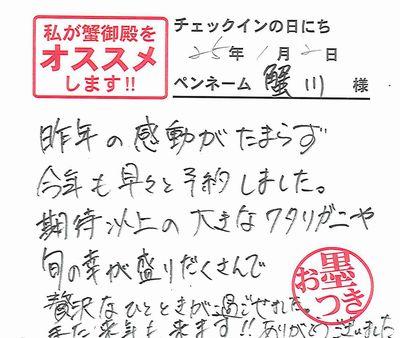 私が蟹御殿を
オススメ
します!!
チェックインの日にち
25年1月2日
ペンネーム 蟹川 様
昨年の感動がたまらず
今年も早々と予約しました。
期待以上の大きなワタリガニや
旬の幸が盛りだくさんで
贅沢なひとときが過ごせました。
また来年も来ます!!ありがとうございました
お墨つき